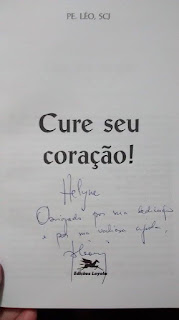 PE. LÉO, SCJ
Cure seu
coração!
Helyne
Obrigado por sua dedicação
e por sua valiosa ajuda,
Edições Loyola